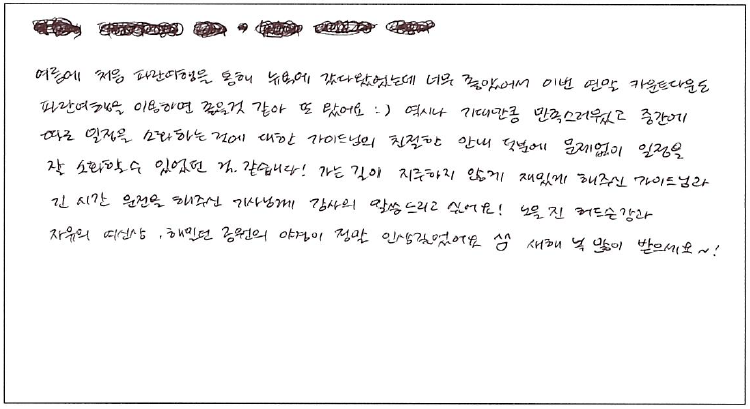 여름에 처음 파란여행을 통해 뉴욕에 갔다왔었는데 너무 좋았어서 이번 연말 카운트다운도
파란여행을 이용하면 좋을것 같아 또 왔어요 :) 역시나 기대만큼 만족스러웠고 중간에
따로 일정을 소화하는 것에 대한 가이드님의 친절한 안내 덕분에 문제없이 일정을
잘 소화할 수 있었던 것 같습니다! 가는 길이 지루하지 않게 재밌게 해주신 가이드님과
긴 시간 운전을 해주신 기사님께 감사의 말씀드리고 싶어요! 노을 진 허드슨강과
자유의 여신상, 해밀턴 공원의 야경이 정말 인생길었어요 ^^ 새해 복 많이 받으세요~!